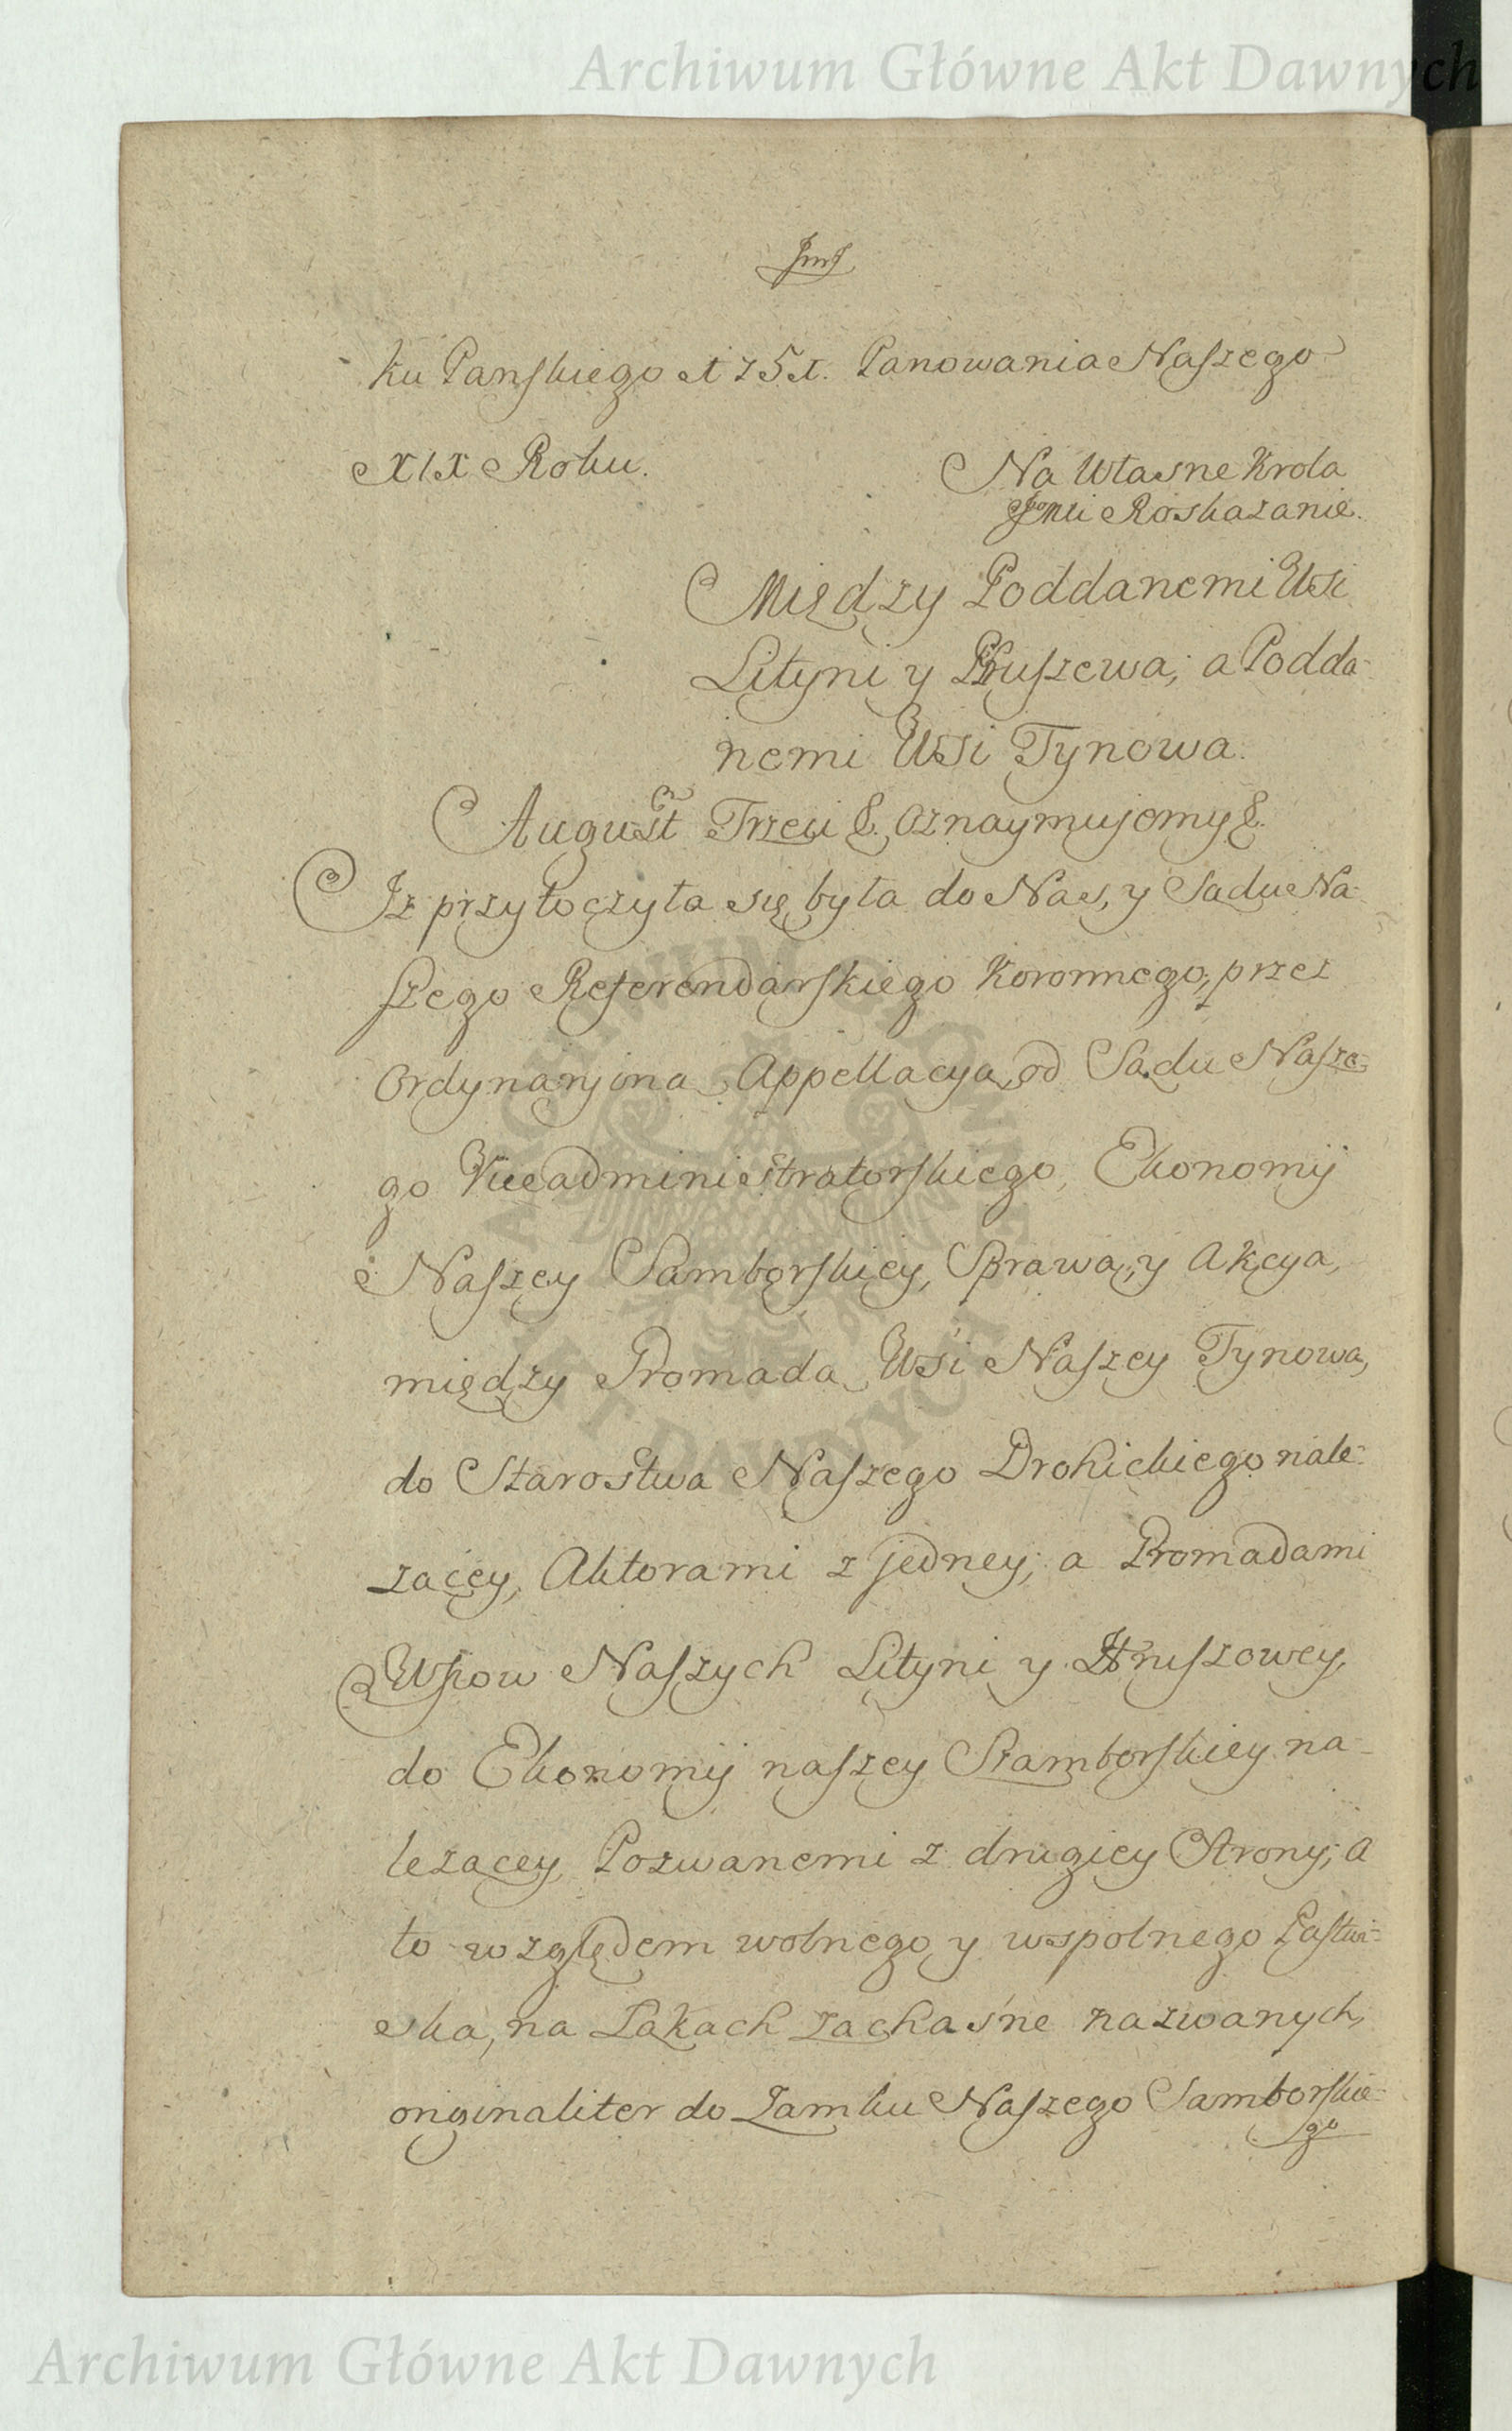 Archiwum Główne Akt Dawnych
ku Panskiego 1751. Panowania Naszego
XIX Roku.
Na Własne Krola
Jmci Roskazanie.
Między Poddanemi Wsi
Lityni y Hruszewa; a Podda-
nemi Wsi Tynowa.
August Trzeci &. Oznaymujemy &.
Iz przytoczyła się była do Nas, y Sądu Na-
szego Referendarskiego Koronnego, przez
Ordynaryiną Appellacyą, od Sądu Nasze-
go Viceadministratorskiego, Ekonomij
Naszey Samborskiey, Sprawa, y Akcya,
między Gromadą Wsi Naszey Tynowa,
do Starostwa Naszego Drohickiego nale-
zącey, Aktorami z jedney; a Gromadami
Wsiow Naszych Lityni y Hruszowey,
do Ekonomij naszey Szamborskiey na-
lezącey, Pozwanemi z drugiey Strony; a
to względem wolnego y wspolnego Pastwi-
ska, na Łąkach Zachasne nazwanych,
originaliter do Zamku Naszego Samborskie-
go
ARCHIWUM GŁÓWNE AKT DAWNYCH
Archiwum Główne Akt Dawnych